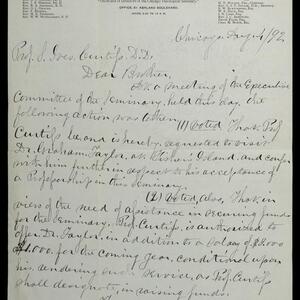 OFFICE, 81 ASHLAND BOULEVARD.
Chicago, Aug. 4/92
Prof. S. Ives Curtiss, D.D.
Dear Brother,
At a meeting of the Executive
Committee of the Seminary, held this day, the
following action was taken.
(1) Voted That Prof.
Curtiss be and is hereby requested to visit
Dr. Graham Taylor, at Fisher's Island, and confer
with him further in respect to his acceptance
of a Professorship in this Seminary.
(2) Voted, also, That in
view of the need of assistance in securing funds
for the Seminary, Prof. Curtiss, is authorized to
offer Dr. Taylor, in addition to a salary of $3,000
$1,000. for the coming year, conditional upon
his rendering such service, as Prof. Curtiss
shall designate, in raising funds.